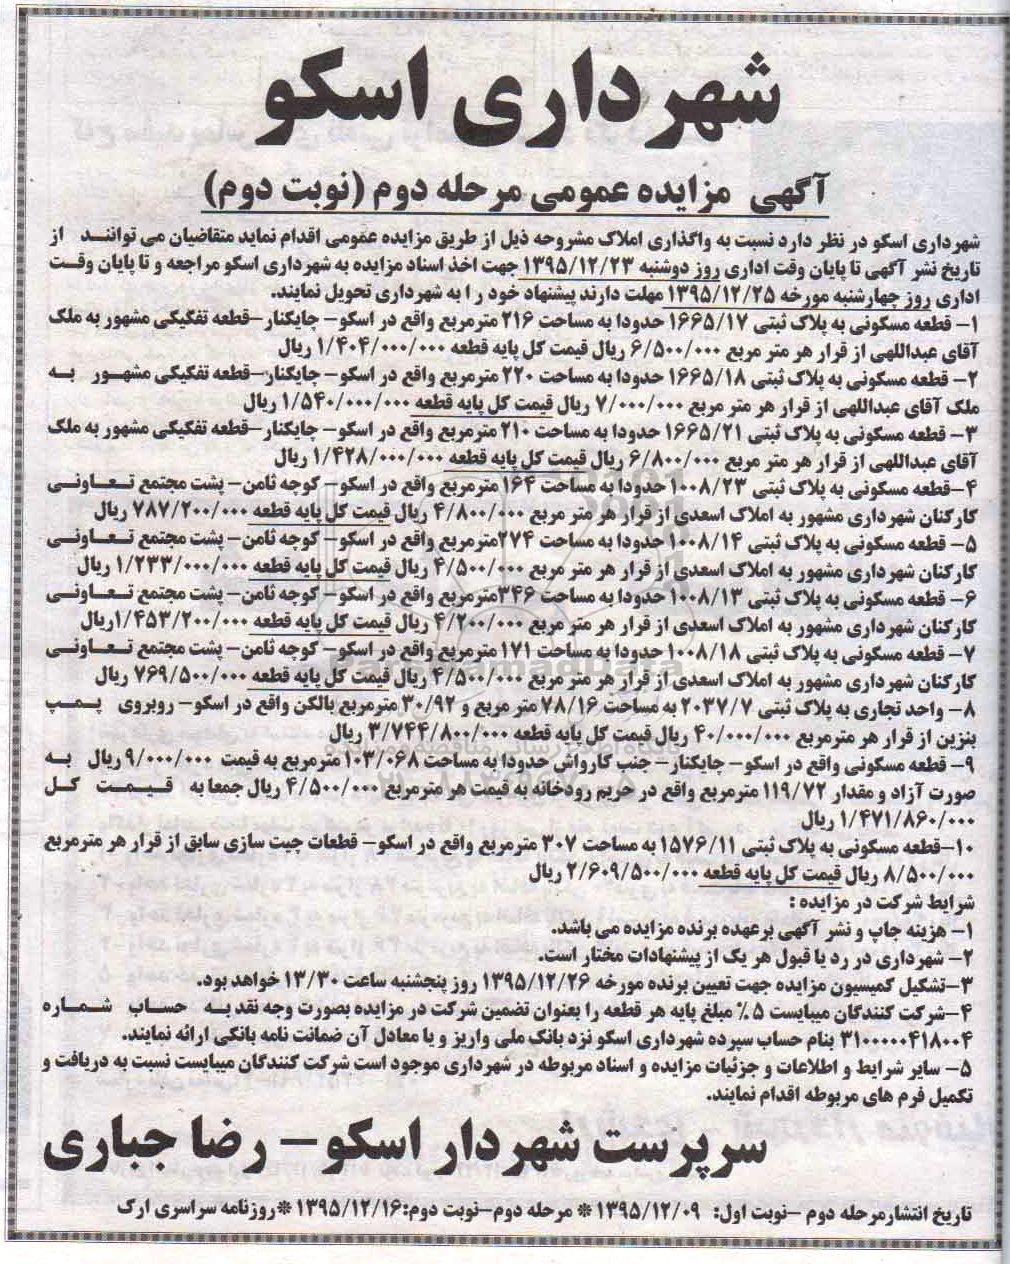 شهرداری اسکو
آگهی مزایده عمومی مرحله دوم (نوبت دوم)
شهرداری اسکو در نظر دارد نسبت به واگذاری املاک مشروحه ذیل از طریق مزایده عمومی اقدام نماید متقاضیان می توانند از
تاریخ نشر آگهی تا پایان وقت اداری روز دوشنبه ۱۳۹۵/۱۲/۲۳ جهت اخذ اسناد مزایده به شهرداری اسکو مراجعه و تا پایان وقت
اداری روز چهارشنبه مورخه ۱۳۹۵/۱۲/۲۵ مهلت دارند پیشنهاد خود را به شهرداری تحویل نمایند.
۱- قطعه مسکونی به پلاک ثبتی ۱۶۶۵/۱۷ حدودا به مساحت ۲۱۶ مترمربع واقع در اسکو- چایکنار-قطعه تفکیکی مشهور به ملک
آقای عبداللهی از قرار هر متر مربع ۶/۵۰۰/۰۰۰ ریال قیمت کل پایه قطعه ۱/۴۰۴/۰۰۰/۰۰۰ ریال
۲- قطعه مسکونی به پلاک ثبتی ۱۶۶۵/۱۸ حدودا به مساحت ۲۲۰ مترمربع واقع در اسکو- چایکنار-قطعه تفکیکی مشهور به
ملک آقای عبداللهی از قرار هر متر مربع ۷/۰۰۰/۰۰۰ ریال قیمت کل پایه قطعه ۱/۵۴۰/۰۰۰/۰۰۰ ریال
۳- قطعه مسکونی به پلاک ثبتی ۱۶۶۵/۲۱ حدودا به مساحت ۲۱۰ مترمربع واقع در اسکو- چایکنار-قطعه تفکیکی مشهور به ملک
آقای عبداللهی از قرار هر متر مربع ۶/۸۰۰/۰۰۰ ریال قیمت کل پایه قطعه ۱/۴۲۸/۰۰۰/۰۰۰ ریال
۴-قطعه مسکونی به پلاک ثبتی ۱۰۰۸/۲۳ حدودا به مساحت ۱۶۴ مترمربع واقع در اسکو- کوچه ثامن- پشت مجتمع تعاونی
کارکنان شهرداری مشهور به املاک اسعدی از قرار هر متر مربع ۴/۸۰۰/۰۰۰ ریال قیمت کل پایه قطعه ۷۸۷/۲۰۰/۰۰۰ ریال
۵- قطعه مسکونی به پلاک ثبتی ۱۰۰۸/۱۴ حدودا به مساحت ۲۷۴مترمربع واقع در اسکو- کوچه ثامن- پشت مجتمع تعاونی
کارکنان شهرداری مشهور به املاک اسعدی از قرار هر متر مربع ۴/۵۰۰/۰۰۰ ریال قیمت کل پایه قطعه ۱/۲۳۳/۰۰۰/۰۰۰ ریال
۶- قطعه مسکونی به پلاک ثبتی ۱۰۰۸/۱۳ حدودا به مساحت ۳۴۶مترمربع واقع در اسکو- کوچه ثامن- پشت مجتمع تعاونی
کارکنان شهرداری مشهور به املاک اسعدی از قرار هر متر مربع ۴/۲۰۰/۰۰۰ ریال قیمت کل پایه قطعه ۱/۴۵۳/۲۰۰/۰۰۰ریال
۷- قطعه مسکونی به پلاک ثبتی ۱۰۰۸/۱۸ حدودا به مساحت ۱۷۱ مترمربع واقع در اسکو- کوچه ثامن- پشت مجتمع تعاونی
کارکنان شهرداری مشهور به املاک اسعدی از قرار هر متر مربع ۴/۵۰۰/۰۰۰ ریال قیمت کل پایه قطعه ۷۶۹/۵۰۰/۰۰۰ ریال
۸- واحد تجاری به پلاک ثبتی ۲۰۳۷/۷ به مساحت ۷۸/۱۶ متر مربع و ۳۰/۹۲ مترمربع بالکن واقع در اسکو- روبروی پمپ
بنزین از قرار هر مترمربع ۴۰/۰۰۰/۰۰۰ ریال قیمت کل پایه قطعه ۳/۷۴۴/۸۰۰/۰۰۰ ریال
۹- قطعه مسکونی واقع در اسکو- چایکنار- جنب کارواش حدودا به مساحت ۱۰۳/۰۶۸ مترمربع به قیمت ۹/۰۰۰/۰۰۰ ریال به
صورت آزاد و مقدار ۱۱۹/۷۲ مترمربع واقع در حریم رودخانه به قیمت هر مترمربع ۴/۵۰۰/۰۰۰ ریال جمعا به قیمت کل
۱/۴۷۱/۸۶۰/۰۰۰ ریال
۱۰-قطعه مسکونی به پلاک ثبتی ۱۵۷۶/۱۱ به مساحت ۳۰۷ مترمربع واقع در اسکو- قطعات چیت سازی سابق از قرار هر مترمربع
۸/۵۰۰/۰۰۰ ریال قیمت کل پایه قطعه ۲/۶۰۹/۵۰۰/۰۰۰ ریال
شرایط شرکت در مزایده :
۱- هزینه چاپ و نشر آگهی برعهده برنده مزایده می باشد.
۲- شهرداری در رد یا قبول هر یک از پیشنهادات مختار است.
۳-تشکیل کمیسیون مزایده جهت تعیین برنده مورخه ۱۳۹۵/۱۲/۲۶ روز پنجشنبه ساعت ۱۳/۳۰ خواهد بود.
۴-شرکت کنندگان میبایست ۵٪ مبلغ پایه هر قطعه را بعنوان تضمین شرکت در مزایده بصورت وجه نقد به حساب شماره
۳۱۰۰۰۰۰۴۱۸۰۰۴ بنام حساب سپرده شهرداری اسکو نزد بانک ملی واریز و یا معادل آن ضمانت نامه بانکی ارائه نمایند.
۵- سایر شرایط و اطلاعات و جزئیات مزایده و اسناد مربوطه در شهرداری موجود است شرکت کنندگان میبایست نسبت به دریافت و
تکمیل فرم های مربوطه اقدام نمایند.
سرپرست شهردار اسکو- رضا جباری
تاریخ انتشارمرحله دوم -نوبت اول: ۱۳۹۵/۱۲/۰۹ * مرحله دوم-نوبت دوم:۱۳۹۵/۱۲/۱۶ *روزنامه سراسری ارک
ParsNamadData